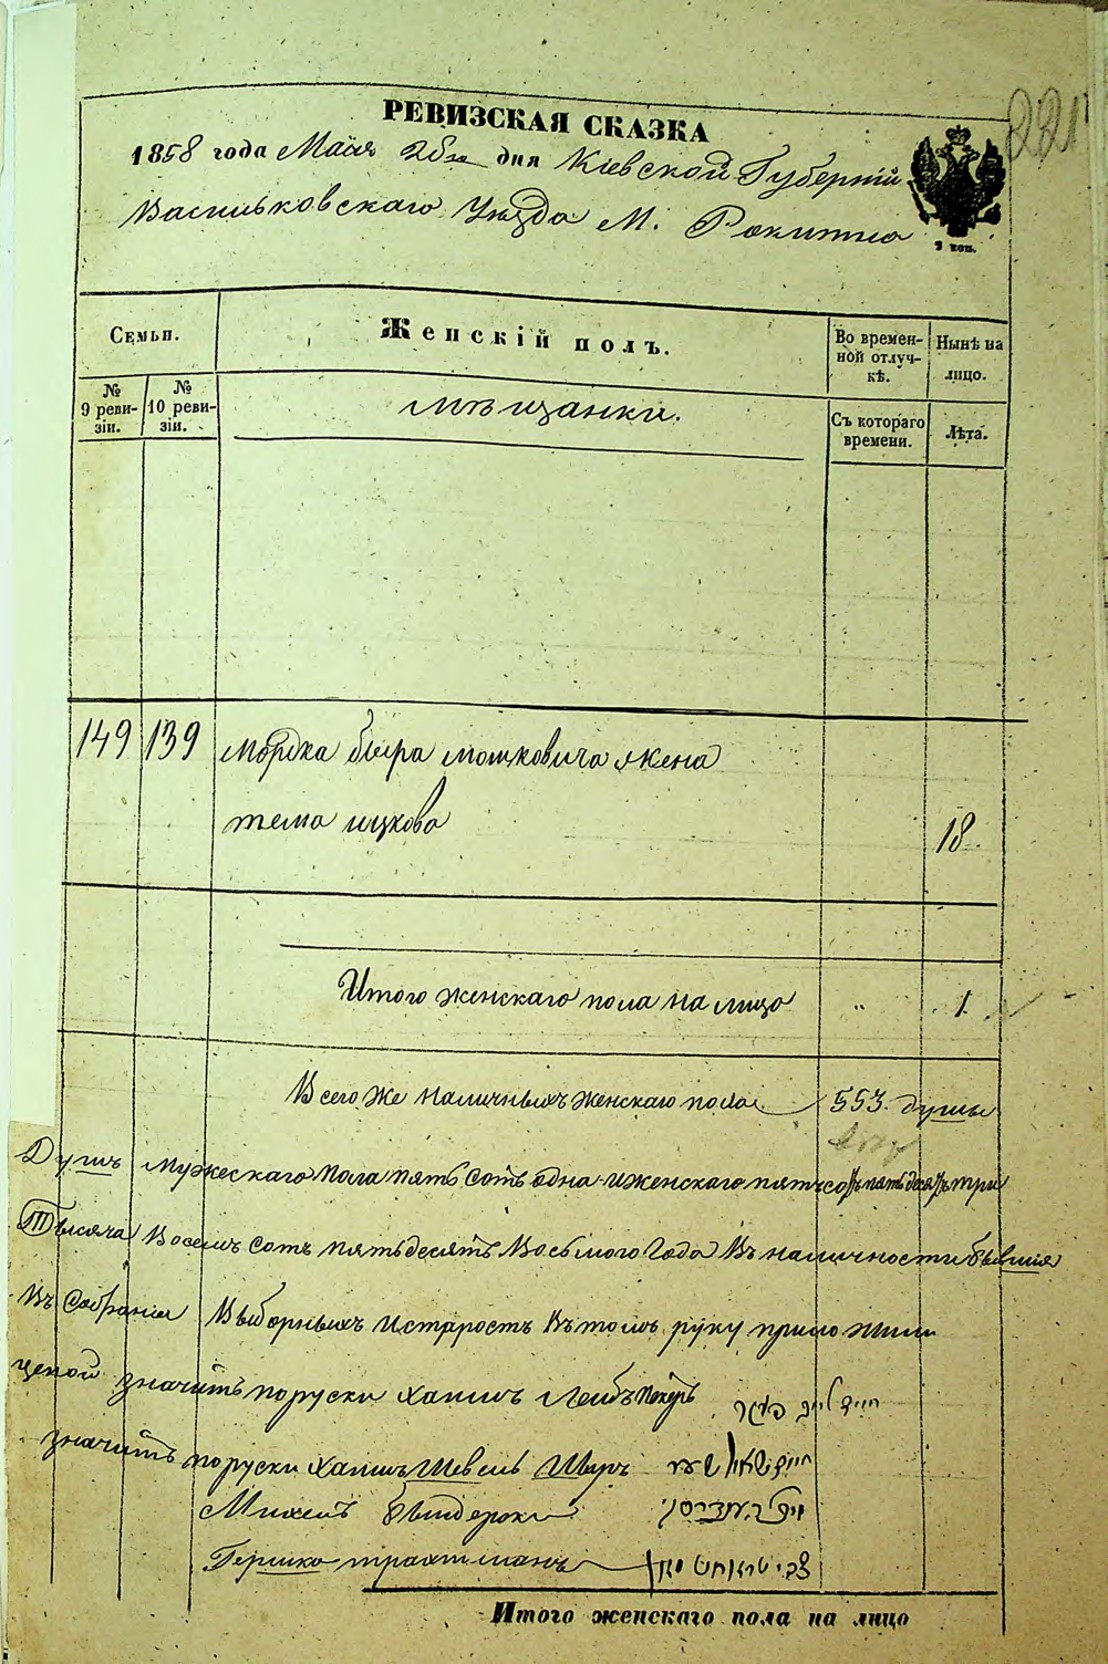 221
РЕВИЗСКАЯ СКАЗКА
1858 года Маия 26го дня Кіевской Губерніи
Васильковскаго Уѣзда М. Рокитна
3 коп.
Семьи. Женскій полъ. Во времен-ной отлуч-кѣ. Нынѣ на лицо.
№ 9 реви-зіи. № 10 реви-зіи. Мѣщанки. Съ котораго времени. Лѣта.
149 139 Мордка Бера Мошковича жена
тема ицкова 18.
Итого женскаго пола на лицо " 1.
Всего же наличныхъ женскаго пола 553. душы
Душъ мужескаго пола пять сотъ одна и женскаго пять сотъ пять десятъ три
Тысяча Восемъ сотъ пятьдесятъ Восьмого Года Въ наличности бывшия
Въ Собрании Выборныхъ и старостъ Въ томъ руку приложили
значитъ по руски Хаимъ Лейбъ
значитъ по руски Хаимъ Шевель Шваръ
Михель
Гершко трахтманъ צבי טראחטמאן
Итого женскаго пола на лицо